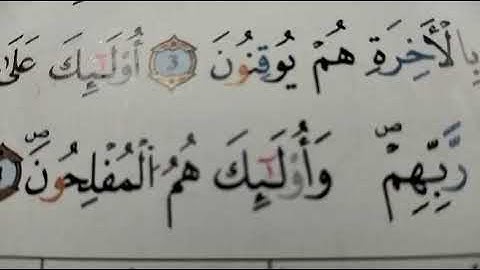 بِالْأَخِرَةِ هُمْ يُوقِنُونَ 3 أُوْلَٰٓئِكَ عَلَىٰ
رَّبِّهِمْ وَأُوْلَٰٓئِكَ هُمُ الْمُفْلِحُونَ